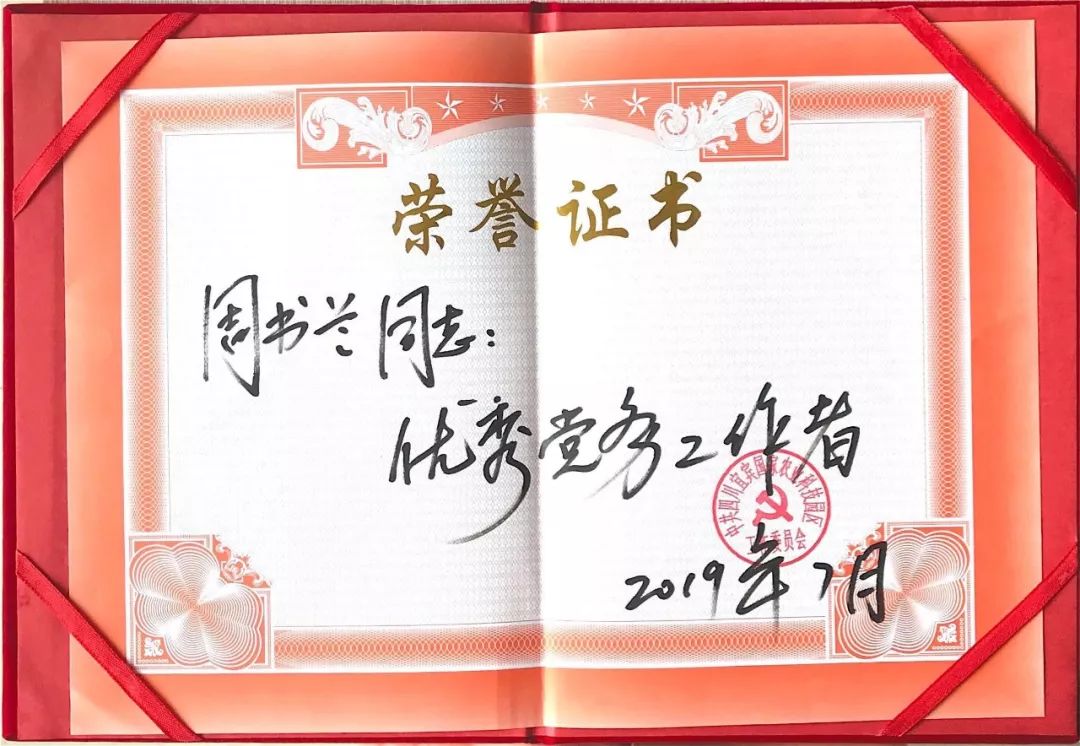 荣誉证书
周书兰同志：
优秀党务工作者
中共四川宜宾国家农业科技园区
工作委员会
2019年7月